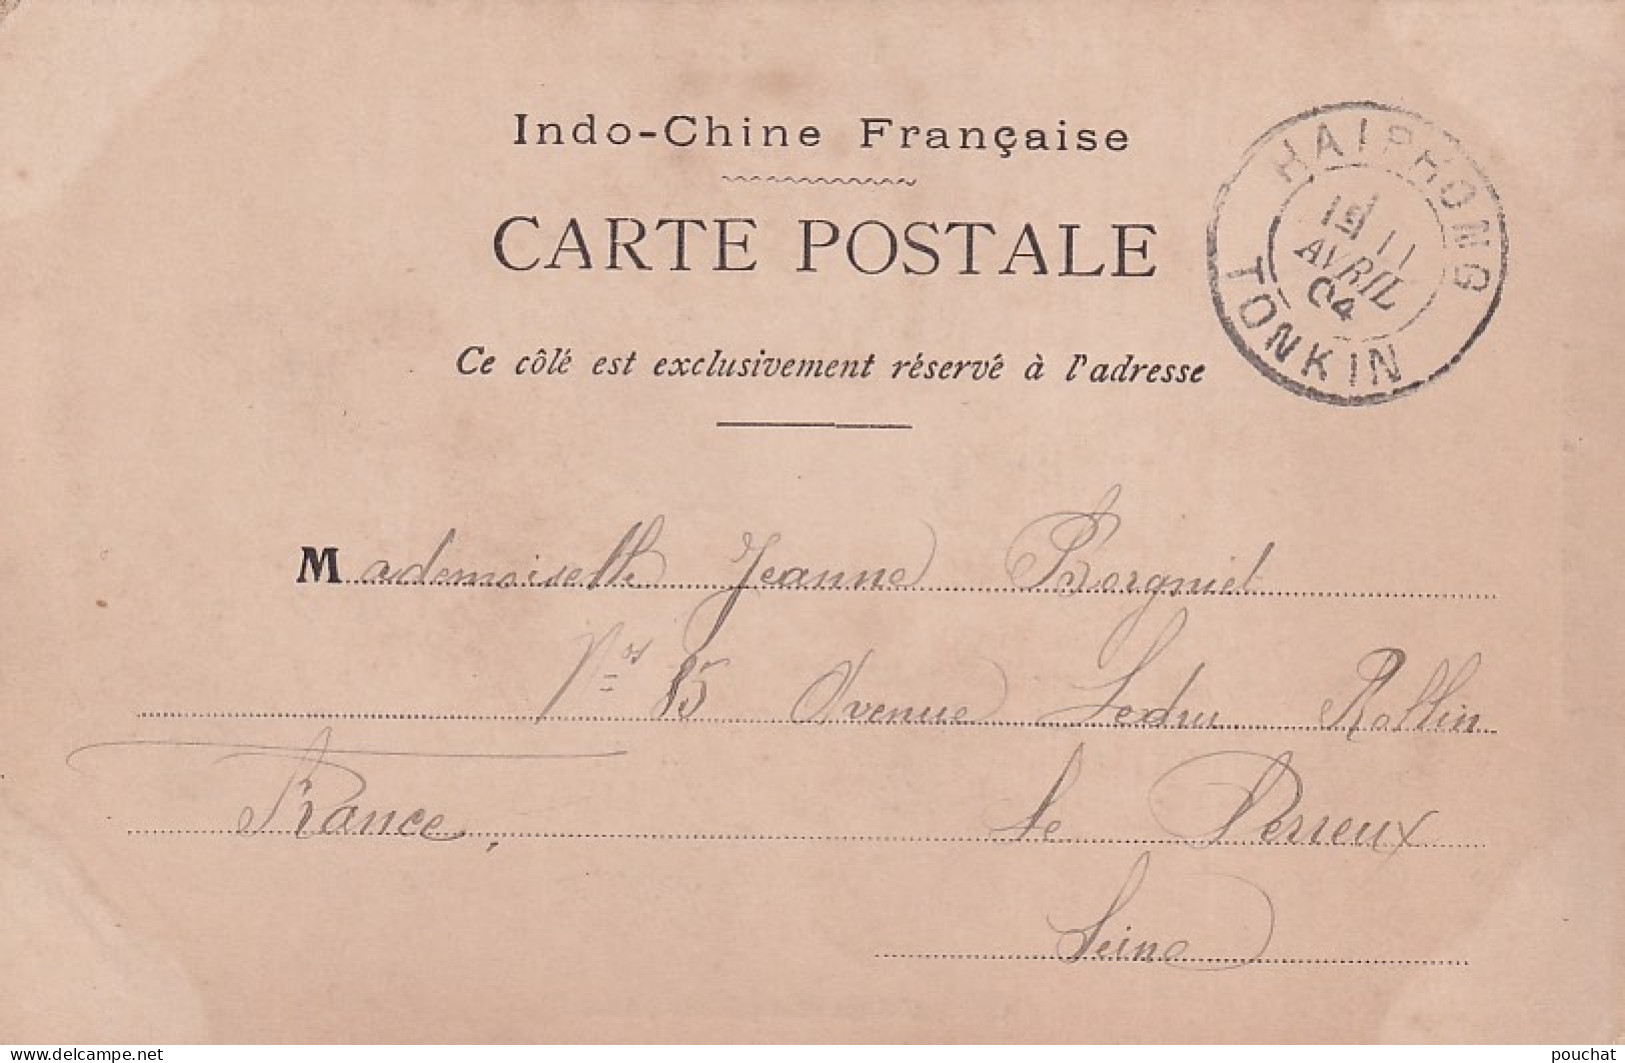 Indo-Chine Française
CARTE POSTALE
Ce côté est exclusivement réservé à l'adresse
HAIPHONG
11
AVRIL
04
TONKIN
Mademoiselle Jeanne Borgniet
85 Avenue Ledru Rollin
France, le Perreux
Seine
delcampe.net
pouchat